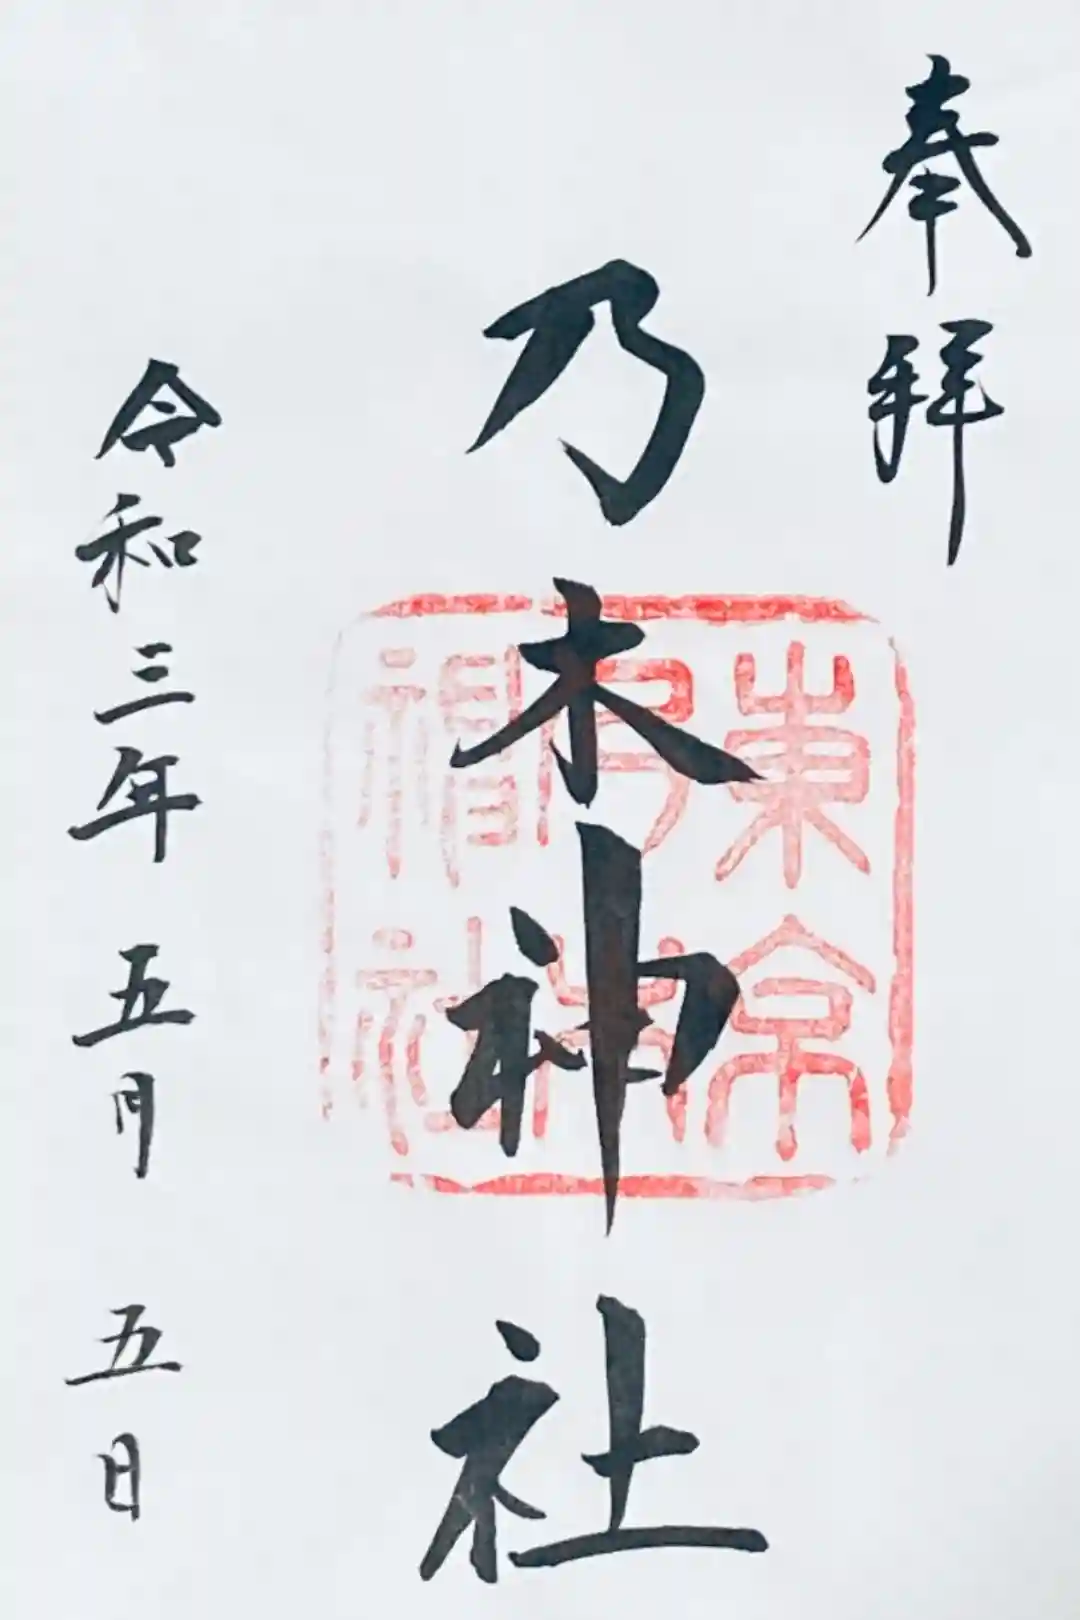 奉拝
乃木神社
東京
乃木
神社
令和三年五月五日